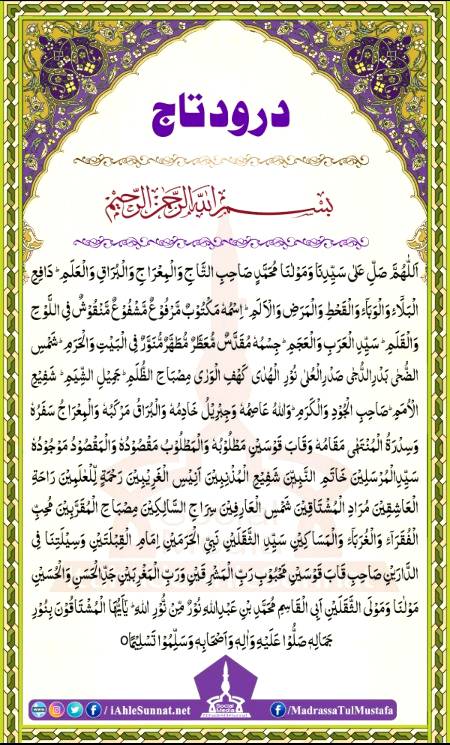 درود تاج
بسم الله الرحمن الرحيم
اَللّٰهُمَّ صَلِّ عَلٰى سَيِّدِنَا وَمَوْلٰنَا مُحَمَّدٍ صَاحِبِ التَّاجِ وَالْمِعْرَاجِ وَالْبُرَاقِ وَالْعَلَمِ ؕ دَافِعِ
الْبَلَآءِ وَالْوَبَآءِ وَالْقَحْطِ وَالْمَرَضِ وَالْاَلَمِ ؕ اِسْمُهٗ مَكْتُوْبٌ مَّرْفُوْعٌ مَّشْفُوْعٌ مَّنْقُوْشٌ فِى اللَّوْحِ
وَالْقَلَمِ ؕ سَيِّدِ الْعَرَبِ وَالْعَجَمِ ؕ جِسْمُهٗ مُقَدَّسٌ مُّعَطَّرٌ مُّطَهَّرٌ مُّنَوَّرٌ فِى الْبَيْتِ وَالْحَرَمِ ؕ شَمْسِ
الضُّحٰى بَدْرِ الدُّجٰى صَدْرِ الْعُلٰى نُوْرِ الْهُدٰى كَهْفِ الْوَرٰى مِصْبَاحِ الظُّلَمِ ؕ جَمِيْلِ الشِّيَمِ ؕ شَفِيْعِ
الْاُمَمِ ؕ صَاحِبِ الْجُوْدِ وَالْكَرَمِ ؕ وَاللهُ عَاصِمُهٗ وَجِبْرِيْلُ خَادِمُهٗ وَالْبُرَاقُ مَرْكَبُهٗ وَالْمِعْرَاجُ سَفَرُهٗ
وَسِدْرَةُ الْمُنْتَهٰى مَقَامُهٗ وَقَابَ قَوْسَيْنِ مَطْلُوْبُهٗ وَالْمَطْلُوْبُ مَقْصُوْدُهٗ وَالْمَقْصُوْدُ مَوْجُوْدُهٗ
سَيِّدِ الْمُرْسَلِيْنَ خَاتَمِ النَّبِيّٖنَ شَفِيْعِ الْمُذْنِبِيْنَ اَنِيْسِ الْغَرِيْبِيْنَ رَحْمَةٍ لِّلْعٰلَمِيْنَ رَاحَةِ
الْعَاشِقِيْنَ مُرَادِ الْمُشْتَاقِيْنَ شَمْسِ الْعَارِفِيْنَ سِرَاجِ السَّالِكِيْنَ مِصْبَاحِ الْمُقَرَّبِيْنَ مُحِبِّ
الْفُقَرَآءِ وَالْغُرَبَآءِ وَالْمَسَاكِيْنِ سَيِّدِ الثَّقَلَيْنِ نَبِيِّ الْحَرَمَيْنِ اِمَامِ الْقِبْلَتَيْنِ وَسِيْلَتِنَا فِى
الدَّارَيْنِ صَاحِبِ قَابَ قَوْسَيْنِ مَحْبُوْبِ رَبِّ الْمَشْرِقَيْنِ وَرَبِّ الْمَغْرِبَيْنِ جَدِّ الْحَسَنِ وَالْحُسَيْنِ
مَوْلٰنَا وَمَوْلَى الثَّقَلَيْنِ اَبِى الْقَاسِمِ مُحَمَّدِ بْنِ عَبْدِ اللهِ نُوْرٍ مِّنْ نُّوْرِ اللهِ ؕ يٰاَيُّهَا الْمُشْتَاقُوْنَ بِنُوْرِ
جَمَالِهٖ صَلُّوْا عَلَيْهِ وَاٰلِهٖ وَاَصْحَابِهٖ وَسَلِّمُوْا تَسْلِيْمًا ○
/iAhleSunnat.net
Social Media
/MadrassaTulMustafa